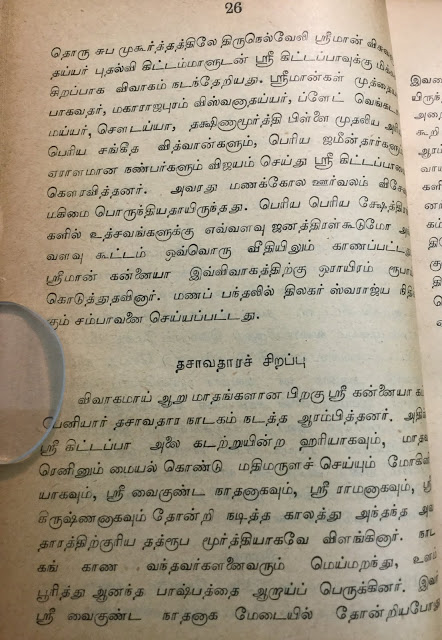 26
தொரு சுப முகூர்த்தத்திலே திருநெல்வேலி ஸ்ரீமான் விசுவ
தய்யர் புதல்வி கிட்டம்மாளுடன் ஸ்ரீ கிட்டப்பாவுக்கு மிக
சிறப்பாக விவாகம் நடந்தேறியது. ஸ்ரீமான்கள் முத்தைய
பாகவதர், மகாராஜபுரம் விஸ்வனாதய்யர், ப்ளேட் வெங்க
மய்யர், சௌடய்யா, தக்ஷிணாமூர்த்தி பிள்ளை முதலிய அரி
பெரிய சங்கீத வித்வான்களும், பெரிய ஜமீன்தார்களும்
ஏராளமான நண்பர்களும் விஜயம் செய்து ஸ்ரீ கிட்டப்பாவை
கௌரவித்தனர். அவரது மணக்கோல ஊர்வலம் விசே
மகிமை பொருந்தியதாயிருந்தது. பெரிய பெரிய க்ஷேத்தி
களில் உத்சவங்களுக்கு எவ்வளவு ஜனத்திரள்கூடுமோ அ
வளவு கூட்டம் ஒவ்வொரு வீதியிலும் காணப்பட்ட
ஸ்ரீமான் கன்னையா இவ்விவாகத்திற்கு ஓராயிரம் ரூபா
கொடுத்துதவினார். மணப் பந்தலில் திலகர் ஸ்வராஜ்ய நிதி
கும் சம்பாவனை செய்யப்பட்டது.
தசாவதாரச் சிறப்பு
விவாகமாய் ஆறு மாதங்களான பிறகு ஸ்ரீ கன்னையா க
பெனியார் தசாவதார நாடகம் நடத்த ஆரம்பித்தனர். அதி
ஸ்ரீ கிட்டப்பா அலை கடற்றுயின்ற ஹரியாகவும், மாத
ரெனினும் மையல் கொண்டு மதிமருளச் செய்யும் மோகினி
யாகவும், ஸ்ரீ வைகுண்ட நாதனாகவும், ஸ்ரீ ராமனாகவும், ஸ்ரீ
கிருஷ்ணனாகவும் தோன்றி நடித்த காலத்து அந்தந்த அவ
தாரத்திற்குரிய தத்ரூப மூர்த்தியாகவே விளங்கினார். நாட
கங் காண வந்தவர்களனைவரும் மெய்மறந்து, உள
பூரித்து ஆனந்த பாஷ்பத்தை ஆறாய்ப் பெருக்கினர். இவ
ஸ்ரீ வைகுண்ட நாதனாக மேடையில் தோன்றியபோ